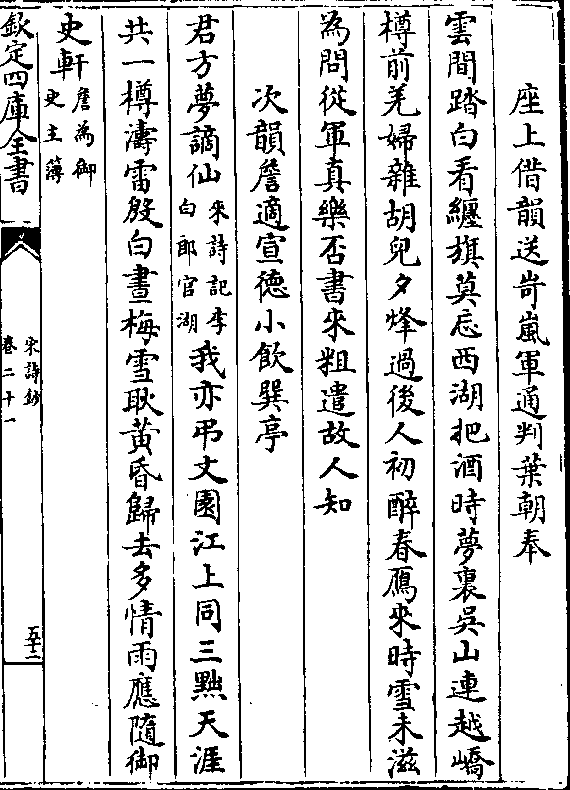 座上偕韻送岢嵐軍通判葉朝奉
雲間踏白看纏旗莫忘西湖把酒時夢裏吳山連越嶠
樽前羌婦雜胡兒夕烽過後人初醉春鴈來時雪未滋
為問從軍真樂否書來粗遣故人知
次韻詹適宣德小飲巽亭
君方夢謫仙
來詩記李
白郎官湖
我亦弔文園江上同三黜天涯
共一樽濤雷殷白晝梅雪耿黃昏歸去多情雨應隨御
史軒
詹為御
史主簿
欽定四庫全書
宋詩鈔
卷二十一
五十二